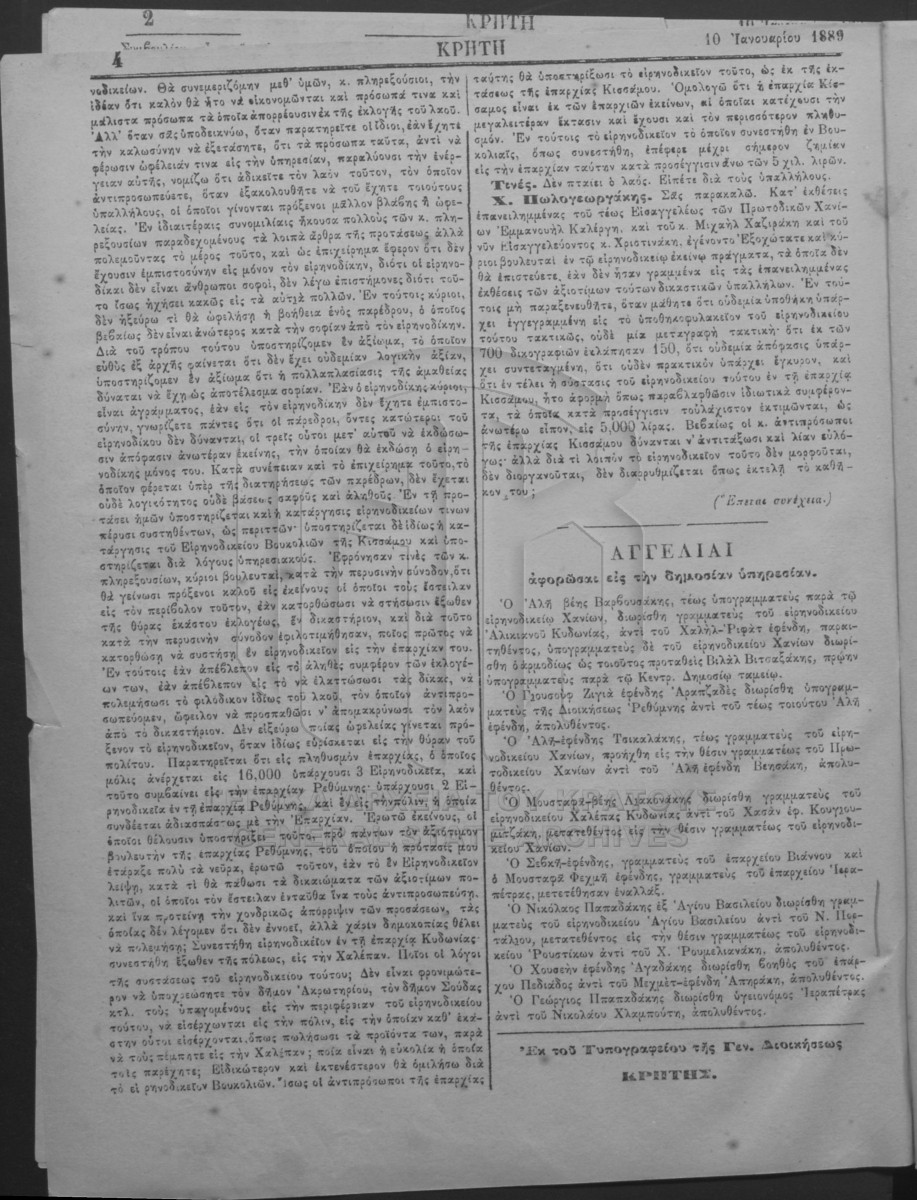 2 ΚΡΗΤΗ
10 Ἰανουαρίου 1889
4 ΚΡΗΤΗ
νοδικείων. Θὰ συνεμεριζόμην μεθ' ὑμῶν, κ. πληρεξούσιοι, τὴν
ἰδέαν ὅτι καλὸν θὰ ἦτο νὰ οἰκονομῶνται καὶ πρόσωπά τινα καὶ
μάλιστα πρόσωπα τὰ ὁποῖα ἀπορρέουσιν ἐκ τῆς ἐκλογῆς τοῦ λαοῦ.
Ἀλλ' ὅταν σᾶς ὑποδεικνύω, ὅταν παρατηρεῖτε οἱ ἴδιοι, ἐὰν ἔχητε
τὴν καλωσύνην νὰ ἐξετάσητε, ὅτι τὰ πρόσωπα ταῦτα, ἀντὶ νὰ
φέρωσιν ὠφέλειάν τινα εἰς τὴν ὑπηρεσίαν, παραλύουσι τὴν ἐνέρ-
γειαν αὐτῆς, νομίζω ὅτι ἀδικεῖτε τὸν λαὸν τοῦτον, τὸν ὁποῖον
ἀντιπροσωπεύετε, ὅταν ἐξακολουθῆτε νὰ τοῦ ἔχητε τοιούτους
ὑπαλλήλους, οἱ ὁποῖοι γίνονται πρόξενοι μᾶλλον βλάβης ἢ ὠφε-
λείας. Ἐν ἰδιαιτέραις συνομιλίαις ἤκουσα πολλοὺς τῶν κ. πλη-
ρεξουσίων παραδεχομένους τὰ λοιπὰ ἄρθρα τῆς προτάσεως ἀλλὰ
πολεμοῦντας τὸ μέρος τοῦτο, καὶ ὡς ἐπιχείρημα ἔφερον ὅτι δὲν
ἔχουσιν ἐμπιστοσύνην εἰς μόνον τὸν εἰρηνοδίκην, διότι οἱ εἰρηνο-
δίκαι δὲν εἶναι ἄνθρωποι σοφοί, δὲν λέγω ἐπιστήμονες διότι τοῦ-
το ἴσως ἠχήσει κακῶς εἰς τὰ αὐτιὰ πολλῶν. Ἐν τούτοις κύριοι,
δὲν ἠξεύρω τί θὰ ὠφελήσῃ ἡ βοήθεια ἑνὸς παρέδρου, ὁ ὁποῖος
βεβαίως δὲν εἶναι ἀνώτερος κατὰ τὴν σοφίαν ἀπὸ τὸν εἰρηνοδίκην.
Διὰ τοῦ τρόπου τούτου ὑποστηρίζομεν ἓν ἀξίωμα, τὸ ὁποῖον
εὐθὺς ἐξ ἀρχῆς φαίνεται ὅτι δὲν ἔχει οὐδεμίαν λογικὴν ἀξίαν,
ὑποστηρίζομεν ἓν ἀξίωμα ὅτι ἡ πολλαπλασίασις τῆς ἀμαθείας
δύναται νὰ ἔχῃ ὡς ἀποτέλεσμα σοφίαν. Ἐὰν ὁ εἰρηνοδίκης, κύριοι,
εἶναι ἀγράμματος, ἐὰν εἰς τὸν εἰρηνοδίκην δὲν ἔχητε ἐμπιστο-
σύνην, γνωρίζετε πάντες ὅτι οἱ πάρεδροι, ὄντες κατώτεροι τοῦ
εἰρηνοδίκου δὲν δύνανται, οἱ τρεῖς οὗτοι μετ' αὐτοῦ νὰ ἐκδώσω-
σιν ἀπόφασιν ἀνωτέραν ἐκείνης, τὴν ὁποίαν θὰ ἐκδώσῃ ὁ εἰρη-
νοδίκης μόνος του. Κατὰ συνέπειαν καὶ τὸ ἐπιχείρημα τοῦτο, τὸ
ὁποῖον φέρεται ὑπὲρ τῆς διατηρήσεως τῶν παρέδρων, δὲν ἔχεται
οὐδὲ λογικότητος οὐδὲ βάσεως σαφοῦς καὶ ἀληθοῦς. Ἐν τῇ προ-
τάσει ἡμῶν ὑποστηρίζεται καὶ ἡ κατάργησις εἰρηνοδικείων τινων
πέρυσι συστηθέντων, ὡς περιττῶν· ὑποστηρίζεται δὲ ἰδίως ἡ κα-
τάργησις τοῦ Εἰρηνοδικείου Βουκολιῶν τῆς Κισσάμου καὶ ὑπο-
στηρίζεται διὰ λόγους ὑπηρεσιακούς. Ἐφρόνησαν τινὲς τῶν κ.
πληρεξουσίων, κύριοι βουλευταί, κατὰ τὴν περυσινὴν σύνοδον, ὅτι
θὰ γείνωσι πρόξενοι καλοῦ εἰς ἐκείνους οἱ ὁποῖοι τοὺς ἔστειλαν
εἰς τὸν περίβολον τοῦτον, ἐὰν κατορθώσωσι νὰ στήσωσιν ἔξωθεν
τῆς θύρας ἑκάστου ἐκλογέως, ἓν δικαστήριον, καὶ διὰ τοῦτο
κατὰ τὴν περυσινὴν σύνοδον ἐφιλοτιμήθησαν, ποῖος πρῶτος νὰ
κατορθώσῃ νὰ συστήσῃ ἓν εἰρηνοδικεῖον εἰς τὴν ἐπαρχίαν του.
Ἐν τούτοις ἐὰν ἀπέβλεπον εἰς τὸ ἀληθὲς συμφέρον τῶν ἐκλογέ-
ων των, ἐὰν ἀπέβλεπον εἰς τὸ νὰ ἐλαττώσωσι τὰς δίκας, νὰ
πολεμήσωσι τὸ φιλόδικον ἰδίως τοῦ λαοῦ, τὸν ὁποῖον ἀντιπρο-
σωπεύομεν, ὤφειλον νὰ προσπαθῶσι ν' ἀπομακρύνωσι τὸν λαὸν
ἀπὸ τὸ δικαστήριον. Δὲν εἰξεύρω ποίας ὠφελείας γίνεται πρό-
ξενον τὸ εἰρηνοδικεῖον, ὅταν ἰδίως εὑρίσκεται εἰς τὴν θύραν τοῦ
πολίτου. Παρατηρεῖται ὅτι εἰς πληθυσμὸν ἐπαρχίας, ὁ ὁποῖος
μόλις ἀνέρχεται εἰς 16,000 ὑπάρχουσι 3 Εἰρηνοδικεῖα, καὶ
τοῦτο συμβαίνει εἰς τὴν ἐπαρχίαν Ρεθύμνης· ὑπάρχουσι 2 Εἰ-
ρηνοδικεῖα ἐν τῇ ἐπαρχίᾳ Ρεθύμνης, καὶ ἓν εἰς τὴν πόλιν, ἡ ὁποία
συνδέεται ἀδιασπάστως μὲ τὴν Ἐπαρχίαν. Ἐρωτῶ ἐκείνους, οἱ
ὁποῖοι θέλουσιν ὑποστηρίξει τοῦτο, πρὸ πάντων τὸν ἀξιότιμον
βουλευτὴν τῆς ἐπαρχίας Ρεθύμνης, τοῦ ὁποίου ἡ πρότασίς μου
ἐτάραξε πολὺ τὰ νεῦρα, ἐρωτῶ τοῦτον, ἐὰν τὸ ἓν Εἰρηνοδικεῖον
λείψῃ, κατὰ τί θὰ πάθωσι τὰ δικαιώματα τῶν ἀξιοτίμων πο-
λιτῶν, οἱ ὁποῖοι τὸν ἔστειλαν ἐνταῦθα ἵνα τοὺς ἀντιπροσωπεύσῃ.
καὶ ἵνα προτείνῃ τὴν χονδρικῶς ἀπόρριψιν τῶν προτάσεων, τὰς
ὁποίας δὲν λέγομεν ὅτι δὲν ἐννοεῖ, ἀλλὰ χάριν δημοκοπίας θέλει
νὰ πολεμήσῃ; Συνεστήθη εἰρηνοδικεῖον ἐν τῇ ἐπαρχίᾳ Κυδωνίας·
συνεστήθη ἔξωθεν τῆς πόλεως, εἰς τὴν Χαλέπαν. Ποῖοι οἱ λόγοι
τῆς συστάσεως τοῦ εἰρηνοδικείου τούτου; Δὲν εἶναι φρονιμώτε-
ρον νὰ ὑποχρεώσητε τὸν δῆμον Ἀκρωτηρίου, τὸν δῆμον Σούδας
κτλ. τοὺς ὑπαγομένους εἰς τὴν περιφέρειαν τοῦ εἰρηνοδικείου
τούτου, νὰ εἰσέρχωνται εἰς τὴν πόλιν, εἰς τὴν ὁποίαν καθ' ἑκά-
στην οὗτοι εἰσέρχονται, ὅπως πωλήσωσι τὰ προϊόντα των, παρὰ
νὰ τοὺς πέμπητε εἰς τὴν Χαλέπαν; ποία εἶναι ἡ εὐκολία ἡ ὁποία
τοὺς παρέχητε; Εἰδικώτερον καὶ ἐκτενέστερον θὰ ὁμιλήσω διὰ
τὸ εἰρηνοδικεῖον Βουκολιῶν. Ἴσως οἱ ἀντιπρόσωποι τῆς ἐπαρχίας
ταύτης θὰ ὑποστηρίξωσι τὸ εἰρηνοδικεῖον τοῦτο, ὡς ἐκ τῆς ἐκ-
τάσεως τῆς ἐπαρχίας Κισσάμου. Ὁμολογῶ ὅτι ἡ ἐπαρχία Κίσ-
σαμος εἶναι ἐκ τῶν ἐπαρχιῶν ἐκείνων, αἱ ὁποῖαι κατέχουσι τὴν
μεγαλειτέραν ἔκτασιν καὶ ἔχουσι καὶ τὸν περισσότερον πληθυ-
σμόν. Ἐν τούτοις τὸ εἰρηνοδικεῖον τὸ ὁποῖον συνεστήθη ἐν Βου-
κολιαῖς, ὅπως συνεστήθη, ἐπέφερε μέχρι σήμερον ζημίαν
εἰς τὴν ἐπαρχίαν ταύτην κατὰ προσέγγισιν ἄνω τῶν 5 χιλ. λιρῶν.
Τενές. Δὲν πταίει ὁ λαός. Εἰπέτε διὰ τοὺς ὑπαλλήλους.
Χ. Πωλογεωργάκης. Σᾶς παρακαλῶ. Κατ' ἐκθέσεις
ἐπανειλημμένας τοῦ τέως Εἰσαγγελέως τῶν Πρωτοδικῶν Χανί-
ων Ἐμμανουὴλ Καλέργη, καὶ τοῦ κ. Μιχαὴλ Χαζιράκη καὶ τοῦ
νῦν Εἰσαγγελεύοντος κ. Χριστινάκη, ἐγένοντο Ἐξοχώτατε καὶ κύ-
ριοι βουλευταὶ ἐν τῷ εἰρηνοδικείῳ ἐκείνῳ πράγματα, τὰ ὁποῖα δὲν
θὰ ἐπιστεύετε, ἐὰν δὲν ἦσαν γραμμένα εἰς τὰς ἐπανειλημμένας
ἐκθέσεις τῶν ἀξιοτίμων τούτων δικαστικῶν ὑπαλλήλων. Ἐν τού-
τοις μὴ παραξενευθῆτε, ὅταν μάθητε ὅτι οὐδεμία ὑποθήκη ὑπάρ-
χει ἐγγεγραμμένη εἰς τὸ ὑποθηκοφυλακεῖον τοῦ εἰρηνοδικείου
τούτου τακτικῶς, οὐδὲ μία μεταγραφὴ τακτική· ὅτι ἐκ τῶν
700 δικογραφιῶν ἐκλάπησαν 150, ὅτι οὐδεμία ἀπόφασις ὑπάρ-
χει συντεταγμένη, ὅτι οὐδὲν πρακτικὸν ὑπάρχει ἔγκυρον, καὶ
ὅτι ἐν τέλει ἡ σύστασις τοῦ εἰρηνοδικείου τούτου ἐν τῇ ἐπαρχίᾳ
Κισσάμου, ἦτο ἀφορμὴ ὅπως παραβλαφθῶσιν ἰδιωτικὰ συμφέρον-
τα, τὰ ὁποῖα κατὰ προσέγγισιν τοὐλάχιστον ἐκτιμῶνται, ὡς
ἀνωτέρω εἶπον, εἰς 5,000 λίρας. Βεβαίως οἱ κ. ἀντιπρόσωποι
τῆς ἐπαρχίας Κισσάμου δύνανται ν' ἀντιτάξωσι καὶ λίαν εὐλό-
γως· ἀλλὰ διὰ τί λοιπὸν τὸ εἰρηνοδικεῖον τοῦτο δὲν μορφοῦται,
δὲν διοργανοῦται, δὲν διαρρυθμίζεται ὅπως ἐκτελῇ τὸ καθῆ-
κον του;
(Ἕπεται συνέχεια.)
ΑΓΓΕΛΙΑΙ
ἀφορῶσαι εἰς τὴν δημοσίαν ὑπηρεσίαν.
Ὁ Ἀλῆ βέης Βαρβουσάκης, τέως ὑπογραμματεὺς παρὰ τῷ
εἰρηνοδικείῳ Χανίων, διωρίσθη γραμματεὺς τοῦ εἰρηνοδικείου
Ἀλικιανοῦ Κυδωνίας, ἀντὶ τοῦ Χαλὴλ-Ριφὰτ ἐφένδη, παραι-
τηθέντος, ὑπογραμματεὺς δὲ τοῦ εἰρηνοδικείου Χανίων διωρί-
σθη ἁρμοδίως ὡς τοιοῦτος προταθεὶς Βιλὰλ Βιτσαξάκης, πρῴην
ὑπογραμματεὺς παρὰ τῷ Κεντρ. Δημοσίῳ ταμείῳ.
Ὁ Γιουσοὺφ Ζιγιὰ ἐφένδης Ἀραπζαδὲς διωρίσθη ὑπογραμ-
ματεὺς τῆς Διοικήσεως Ρεθύμνης ἀντὶ τοῦ τέως τοιούτου Ἀλῆ
ἐφένδη, ἀπολυθέντος.
Ὁ Ἀλῆ-ἐφένδης Τσικαλάκης, τέως γραμματεὺς τοῦ εἰρη-
νοδικείου Χανίων, προήχθη εἰς τὴν θέσιν γραμματέως τοῦ Πρω-
τοδικείου Χανίων ἀντὶ τοῦ Ἀλῆ ἐφένδη Βεησάκη, ἀπολυ-
θέντος.
Ὁ Μουσταφᾶ-βέης Λιακονάκης διωρίσθη γραμματεὺς τοῦ
εἰρηνοδικείου Χαλέπας Κυδωνίας ἀντὶ τοῦ Χασὰν ἐφ. Κουγιου-
μιτζάκη, μετατεθέντος εἰς τὴν θέσιν γραμματέως τοῦ εἰρηνοδι-
κείου Χανίων.
Ὁ Σεβκῆ-ἐφένδης, γραμματεὺς τοῦ ἐπαρχείου Βιάννου καὶ
ὁ Μουσταφᾶ Φεχμῆ ἐφένδης, γραμματεὺς τοῦ ἐπαρχείου Ἱερα-
πέτρας, μετετέθησαν ἐναλλάξ.
Ὁ Νικόλαος Παπαδάκης ἐξ Ἁγίου Βασιλείου διωρίσθη γραμ-
ματεὺς τοῦ εἰρηνοδικείου Ἁγίου Βασιλείου ἀντὶ τοῦ Ν. Πορ-
ταλίου, μετατεθέντος εἰς τὴν θέσιν γραμματέως τοῦ εἰρηνοδι-
κείου Ρουστίκων ἀντὶ τοῦ Χ. Ρουμελιανάκη, ἀπολυθέντος.
Ὁ Χουσεὴν ἐφένδης Ἀγαδάκης διωρίσθη βοηθὸς τοῦ ἐπάρ-
χου Πεδιάδος ἀντὶ τοῦ Μεχμὲτ-ἐφένδη Ἀπηράκη, ἀπολυθέντος.
Ὁ Γεώργιος Ππαπαδάκης διωρίσθη ὑγειονόμος Ἱεραπέτρας
ἀντὶ τοῦ Νικολάου Χλαμπούτη, ἀπολυθέντος.
Ἐκ τοῦ Τυπογραφείου τῆς Γεν. Διοικήσεως
ΚΡΗΤΗΣ.